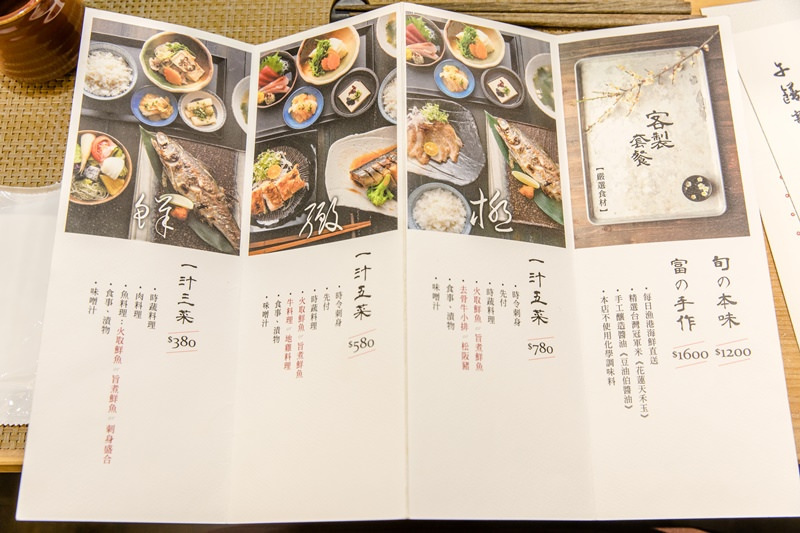 鮮
一汁三菜
$380
・時蔬料理
・肉料理
・魚料理：火取鮮魚 or 旨煮鮮魚 or 刺身盛合
・食事、漬物
・味噌汁
緻
一汁五菜
$580
・時令刺身
・先付
・時蔬料理
・火取鮮魚 or 旨煮鮮魚
・牛料理 or 地雞料理
・食事、漬物
・味噌汁
極
一汁五菜
$780
・時令刺身
・先付
・時蔬料理
・火取鮮魚 or 旨煮鮮魚
・去骨牛小排 or 松阪豬
・食事、漬物
・味噌汁
客製
套餐
【嚴選食材】
旬の本味
$1200
富の手作
$1600
・每日漁港海鮮直送
・精選台灣冠軍米《花蓮天禾玉》
・手工釀造醬油《豆油伯醬油》
・本店不使用化學調味料